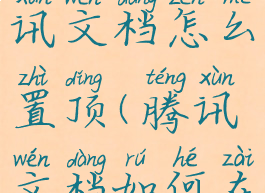 xùn wén dàng zěn me
讯文档怎么
zhì dǐng téng xùn
置顶(腾讯
wén dàng rú hé zài
文档如何在